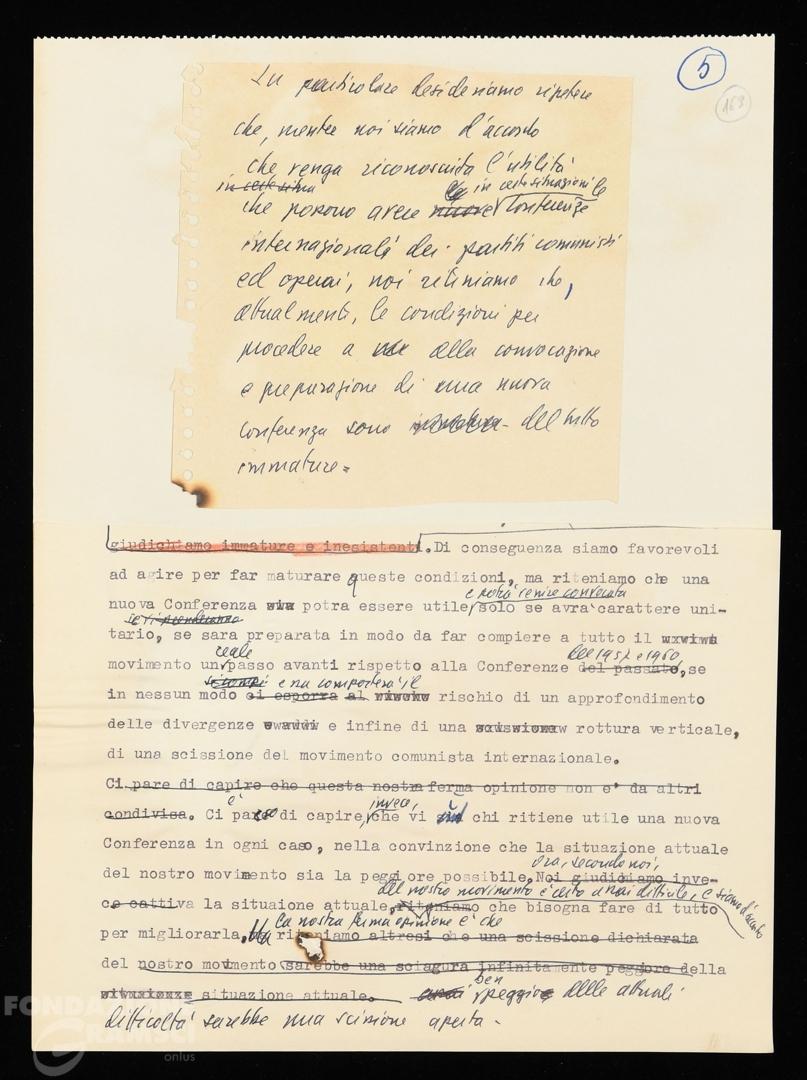 5
163
In particolare desideriamo ripetere
che, mentre noi siamo d'accordo
che venga riconosciuta l'utilità
in certe situa
in certe situazioni le
che possono avere nuove Conferenze
internazionali dei partiti comunisti
ed operai, noi riteniamo che,
attualmente, le condizioni per
procedere a alla convocazione
e preparazione di una nuova
conferenza sono del tutto
immature.
giudichiamo immature e inesistenti. Di conseguenza siamo favorevoli
ad agire per far maturare queste condizioni, ma riteniamo che una
e potrà venire convocata
nuova Conferenza potra essere utile, solo se avra' carattere uni-
se si prenderanno
tario, se sara preparata in modo da far compiere a tutto il
reale
del 1957 e 1960
movimento un passo avanti rispetto alla Conferenze del passato, se
e na comporterà il
in nessun modo ci esporra al rischio di un approfondimento
delle divergenze e infine di una rottura verticale,
di una scissione del movimento comunista internazionale.
Ci pare di capire che questa nostra ferma opinione non e' da altri
è
invece,
condivisa. Ci pare di capire, che vi chi ritiene utile una nuova
Conferenza in ogni caso, nella convinzione che la situazione attuale
ora, secondo noi,
del nostro movimento sia la peggiore possibile. Noi giudichiamo inve-
del nostro movimento è certo assai difficile, e siamo d'accordo
ce cattiva la situaione attuale, riteniamo che bisogna fare di tutto
la nostra ferma opinione è che
per migliorarla. Ma riteniamo altresi che una scissione dichiarata
del nostro movmento sarebbe una sciagura infinitamente peggiore della
ben
situazione attuale. assai peggio delle attuali
difficoltà sarebbe una scissione aperta.
FONDAZIONE
GRAMSCI
onlus